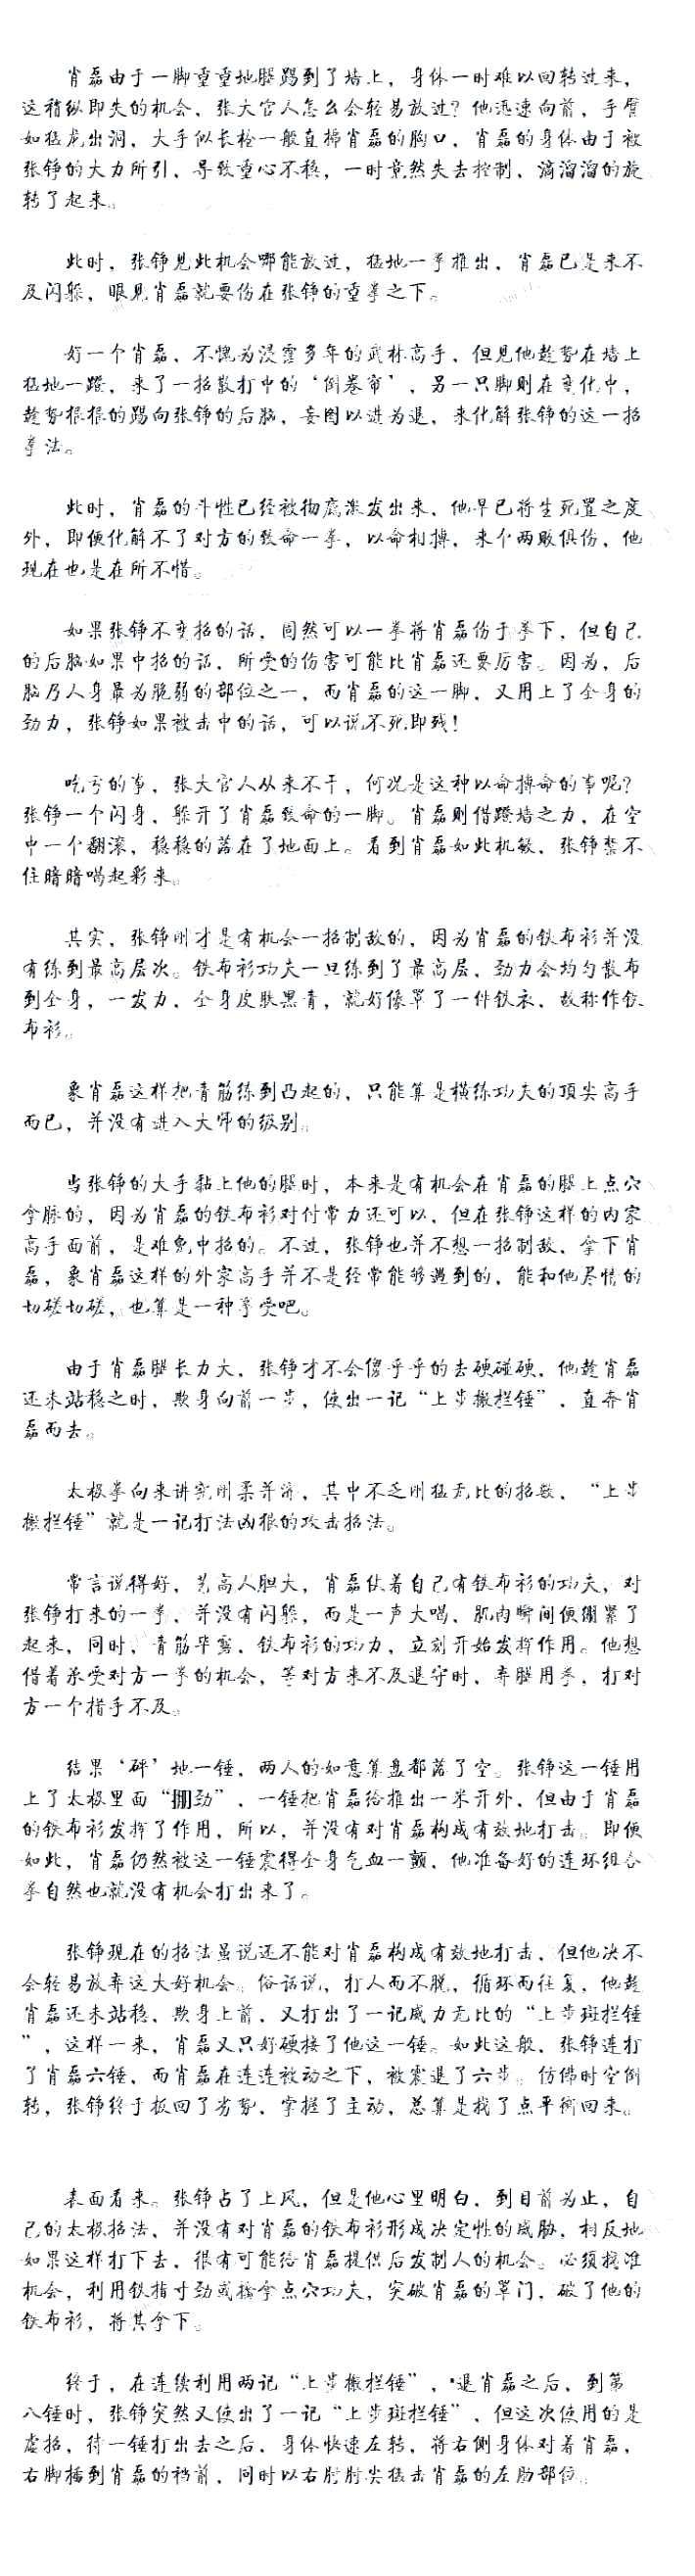 肖磊由于一脚重重地腿踢到了墙上，身体一时难以回转过来，
这稍纵即失的机会、张大官人怎么会轻易放过？他迅速向前，手臂
如猛龙出洞，大手似长枪一般直捣肖磊的胸口，肖磊的身体由于被
张铮的大力所引、导致重心不稳，一时竟然失去控制、滴溜溜的旋
转了起来。
此时，张铮见此机会哪能放过，猛地一拳推出，肖磊已是来不
及闪躲，眼见肖磊就要伤在张铮的重拳之下。
好一个肖磊、不愧为浸霪多年的武林高手，但见他趁势在墙上
猛地一蹬，来了一招散打中的‘倒卷帘’，另一只脚则在变化中，
趁势狠狠的踢向张铮的后脑，妄图以进为退，来化解张铮的这一招
拳法。
此时，肖磊的斗性已经被彻底激发出来、他早已将生死置之度
外，即便化解不了对方的致命一拳，以命相搏，来个两败俱伤，他
现在也是在所不惜。
如果张铮不变招的话，固然可以一拳将肖磊伤于拳下，但自己
的后脑如果中招的话，所受的伤害可能比肖磊还要厉害。因为，后
脑乃人身最为脆弱的部位之一，而肖磊的这一脚、又用上了全身的
劲力，张铮如果被击中的话，可以说不死即残！
吃亏的事，张大官人从来不干，何况是这种以命搏命的事呢？
张铮一个闪身，躲开了肖磊致命的一脚。肖磊则借蹬墙之力，在空
中一个翻滚，稳稳的落在了地面上。看到肖磊如此机敏、张铮禁不
住暗暗喝起彩来。
其实，张铮刚才是有机会一招制敌的，因为肖磊的铁布衫并没
有练到最高层次。铁布衫功夫一旦练到了最高层、劲力会均匀散布
到全身，一发力、全身皮肤黑青，就好像罩了一件铁衣、故称作铁
布衫。
象肖磊这样把青筋练到凸起的，只能算是横练功夫的顶尖高手
而已，并没有进入大师的级别。
当张铮的大手黏上他的腿时，本来是有机会在肖磊的腿上点穴
拿脉的，因为肖磊的铁布衫对付常力还可以、但在张铮这样的内家
高手面前，是难免中招的。不过，张铮也并不想一招制敌、拿下肖
磊，象肖磊这样的外家高手并不是经常能够遇到的，能和他尽情的
切磋切磋，也算是一种享受吧。
由于肖磊腿长力大、张铮才不会傻乎乎的去硬碰硬、他趁肖磊
还未站稳之时，欺身向前一步，使出一记“上步搬拦锤”、直奔肖
磊而去。
太极拳向来讲究刚柔并济，其中不乏刚猛无比的招数、“上步
搬拦锤”就是一记打法凶狠的攻击招法。
常言说得好，艺高人胆大，肖磊仗着自己有铁布衫的功夫，对
张铮打来的一拳、并没有闪躲，而是一声大喝、肌肉瞬间便绷紧了
起来，同时，青筋毕露、铁布衫的功力，立刻开始发挥作用。他想
借着承受对方一拳的机会，等对方来不及退守时、弃腿用拳，打对
方一个措手不及。
结果‘砰’地一锤，两人的如意算盘都落了空。张铮这一锤用
上了太极里面“掤劲”、一锤把肖磊给推出一米开外、但由于肖磊
的铁布衫发挥了作用，所以、并没有对肖磊构成有效地打击。即便
如此，肖磊仍然被这一锤震得全身气血一颤、他准备好的连环组合
拳自然也就没有机会打出来了。
张铮现在的招法虽说还不能对肖磊构成有效地打击、但他决不
会轻易放弃这大好机会。俗话说，打人而不脱，循环而往复，他趁
肖磊还未站稳、欺身上前、又打出了一记威力无比的“上步斑拦锤
”，这样一来，肖磊又只好硬接了他这一锤。如此这般、张铮连打
了肖磊六锤，而肖磊在连连被动之下，被震退了六步。仿佛时空倒
转，张铮终于扳回了劣势、掌握了主动，总算是找了点平衡回来。
表面看来。张铮占了上风，但是他心里明白、到目前为止，自
己的太极招法、并没有对肖磊的铁布衫形成决定性的威胁，相反地
如果这样打下去，很有可能给肖磊提供后发制人的机会。必须瞅准
机会，利用铁指寸劲或擒拿点穴功夫，突破肖磊的罩门，破了他的
铁布衫，将其拿下。
终于，在连续利用两记“上步搬拦锤”，退肖磊之后，到第
八锤时，张铮突然又使出了一记“上步斑拦锤”、但这次使用的是
虚招，待一锤打出去之后、身体快速左转，将右侧身体对着肖磊，
右脚插到肖磊的裆前，同时以右肘肘尖猛击肖磊的左肋部位。